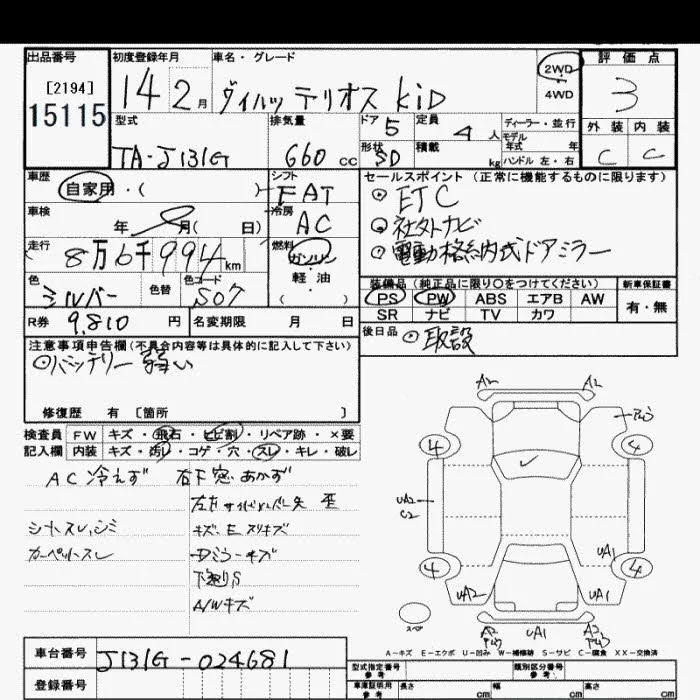 出品番号
[2194]
15115
初度登録年月
14 2月
車名・グレード
ダイハツ テリオス KiD
2WD
・
4WD
評価点
3
型式
TA-J131G
排気量
660 cc
ドア 5
定員 4 人
形状 5D
積載 kg
ディーラー・並行
モデル
年式 年
ハンドル 左・右
外装 内装
C C
車歴
自家用・( )
シフト
FAT
車検
年 月( 日)
冷房
AC
走行
8万6千994km
燃料
ガソリン
・
軽油
( )
色
シルバー
色替
色コード
S07
R券 9,810 円
名変期限 月 日
セールスポイント (正常に機能するものに限ります)
⊙ ETC
⊙ 社外ナビ
⊙ 電動格納式ドアミラー
装備品 (純正品に限り○をつけてください)
PS PW ABS エアB AW
SR ナビ TV カワ
新車保証書
有・無
後日品 ⊙ 取説
注意事項申告欄 (不具合内容等は具体的に記入して下さい)
⊙バッテリー 弱い
修復歴 有 〔箇所 〕
検査員 FW キズ・飛石・ヒビ割・リペア跡・×要
記入欄 内装 キズ・汚レ・コゲ・穴・スレ・キレ・破レ
AC 冷えず 右下窓 あかず
シートスレ,シミ キズ、E スリキズ
カーペットスレ
ドアミラーキズ
下廻りS
A/Wキズ
A2 A2
4 4
UA2
C2
UA1
4 4
UA2 UA1
スペア
UA1
A-キズ E-エクボ U-凹み W-補修跡 S-サビ C-腐食 XX-交換済
車台番号 J131G-024681
登録番号
型式指定番号
参考
類別区分番号
参考
車庫証明用
参考
長さ cm 幅 cm 高さ cm